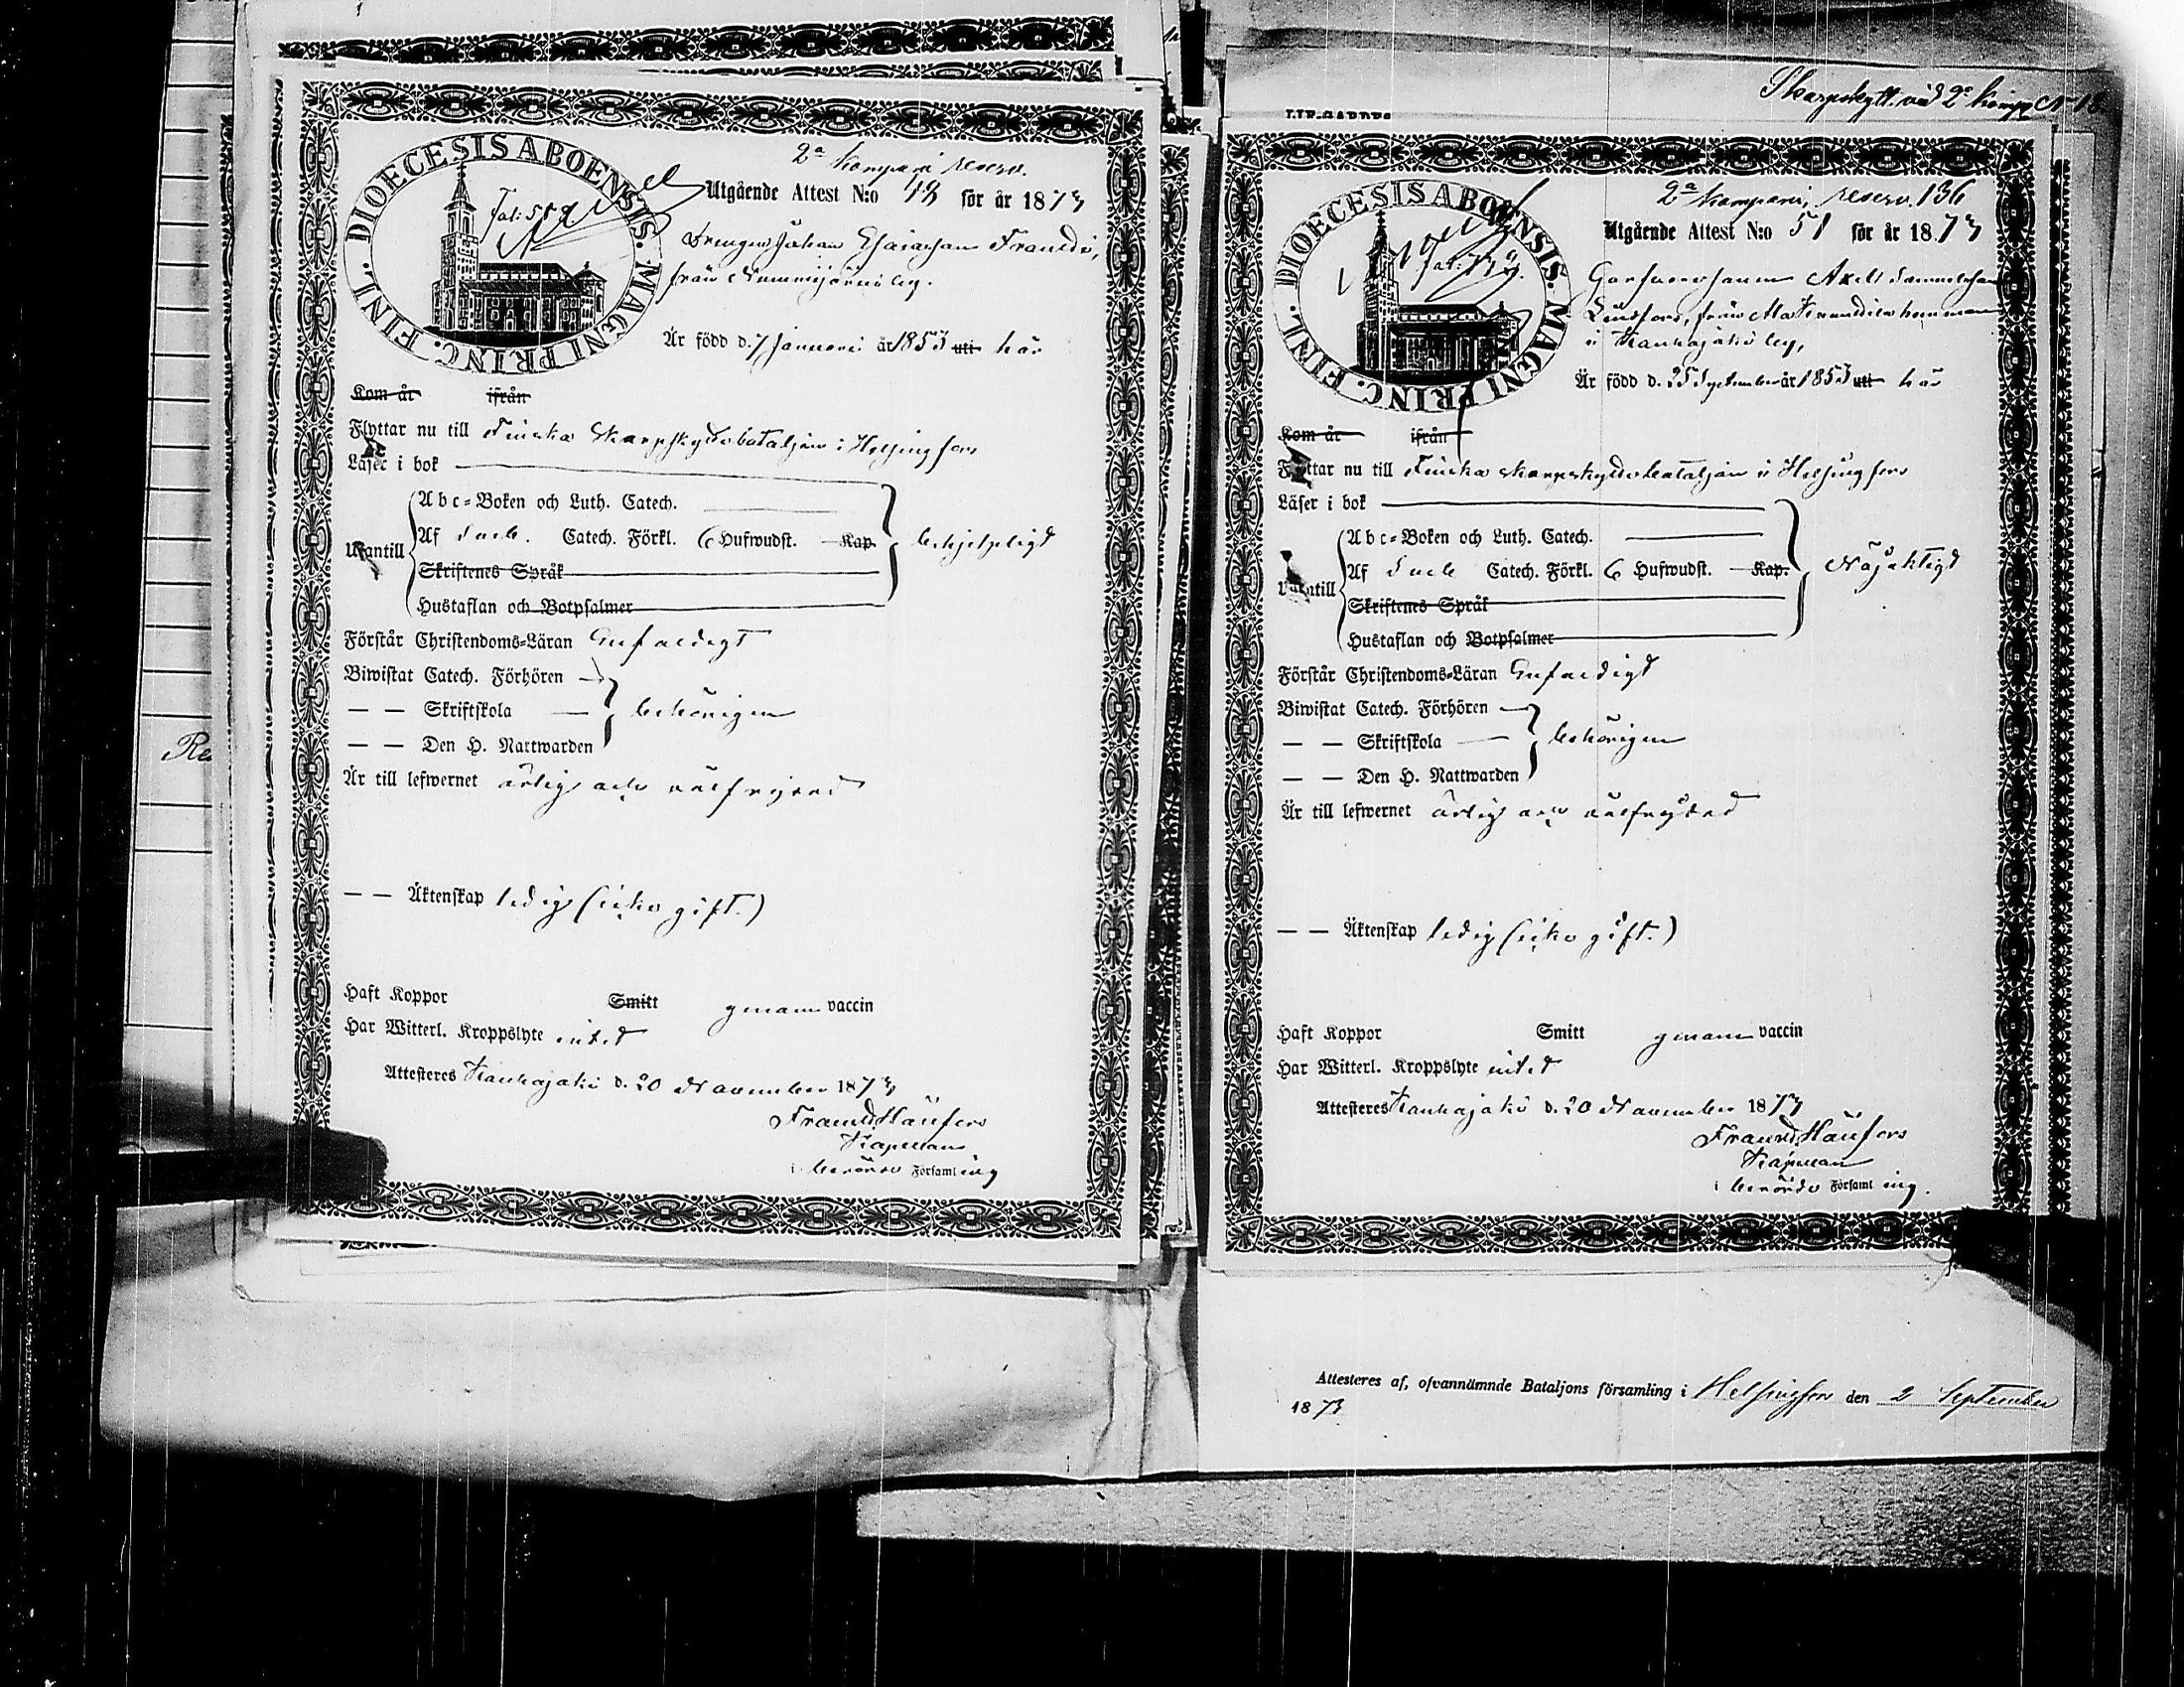 DIOECESIS ABOENSIS. MAGNI PRINC. FINL.
2a Kompani reserv.
Utgående Attest N:o 13 för år 1873
Drengen Johan Esaiasson
från Nummijärvi by.
Är född d. 7 Januari år 1853 uti här
Kom år ifrån
Flyttar nu till Finska Skarpskyttebataljon i Helsingfors
Läser i bok
Abc-Boken och Luth. Catech.
Utantill
Af Sveb. Catech. Förkl. 6 Hufwudst. Kap.
behjelpligt
Skriftenes Språk
Hustaflan och Botpsalmer
Förstår Christendoms-Läran Enfaldigt
Biwistat Catech. Förhören
— — Skriftskola — behörigen
— — Den H. Nattwarden
Är till lefwernet ärlig och välfrejdad
— — Äktenskap ledig (icke gift.)
Haft Koppor Smitt genom vaccin
Har Witterl. Kroppslyte intet
Attesteres Kauhajoki d. 20 November 1873
Kapellan
i berörde Församling
Skarpskytt. vid 2a Komp N
LIF-GARDES
DIOECESIS ABOENSIS. MAGNI PRINC. FINL.
2a Kompani, reserv. 136
Utgående Attest N:o 51 för år 1873
Axel Samuelsson
Lindfors, från
i Kauhajoki by,
Är född d. 25 September år 1853 uti här
Kom år ifrån
Flyttar nu till Finska skarpskyttebataljon i Helsingfors
Läser i bok
Abc-Boken och Luth. Catech.
Utantill
Af Sveb Catech. Förkl. 6 Hufwudst. Kap.
Nöjaktigt
Skriftenes Språk
Hustaflan och Botpsalmer
Förstår Christendoms-Läran Enfaldigt
Biwistat Catech. Förhören
— — Skriftskola — behörigen
— — Den H. Nattwarden
Är till lefwernet ärlig och välfrejdad
— — Äktenskap ledig (icke gift.)
Haft Koppor Smitt genom vaccin
Har Witterl. Kroppslyte intet
Attesteres Kauhajoki d. 20 November 1873
Kapellan
i berörde Församling.
Attesteres af, ofvannämnde Bataljons församling i Helsingfors den 2 September
1873